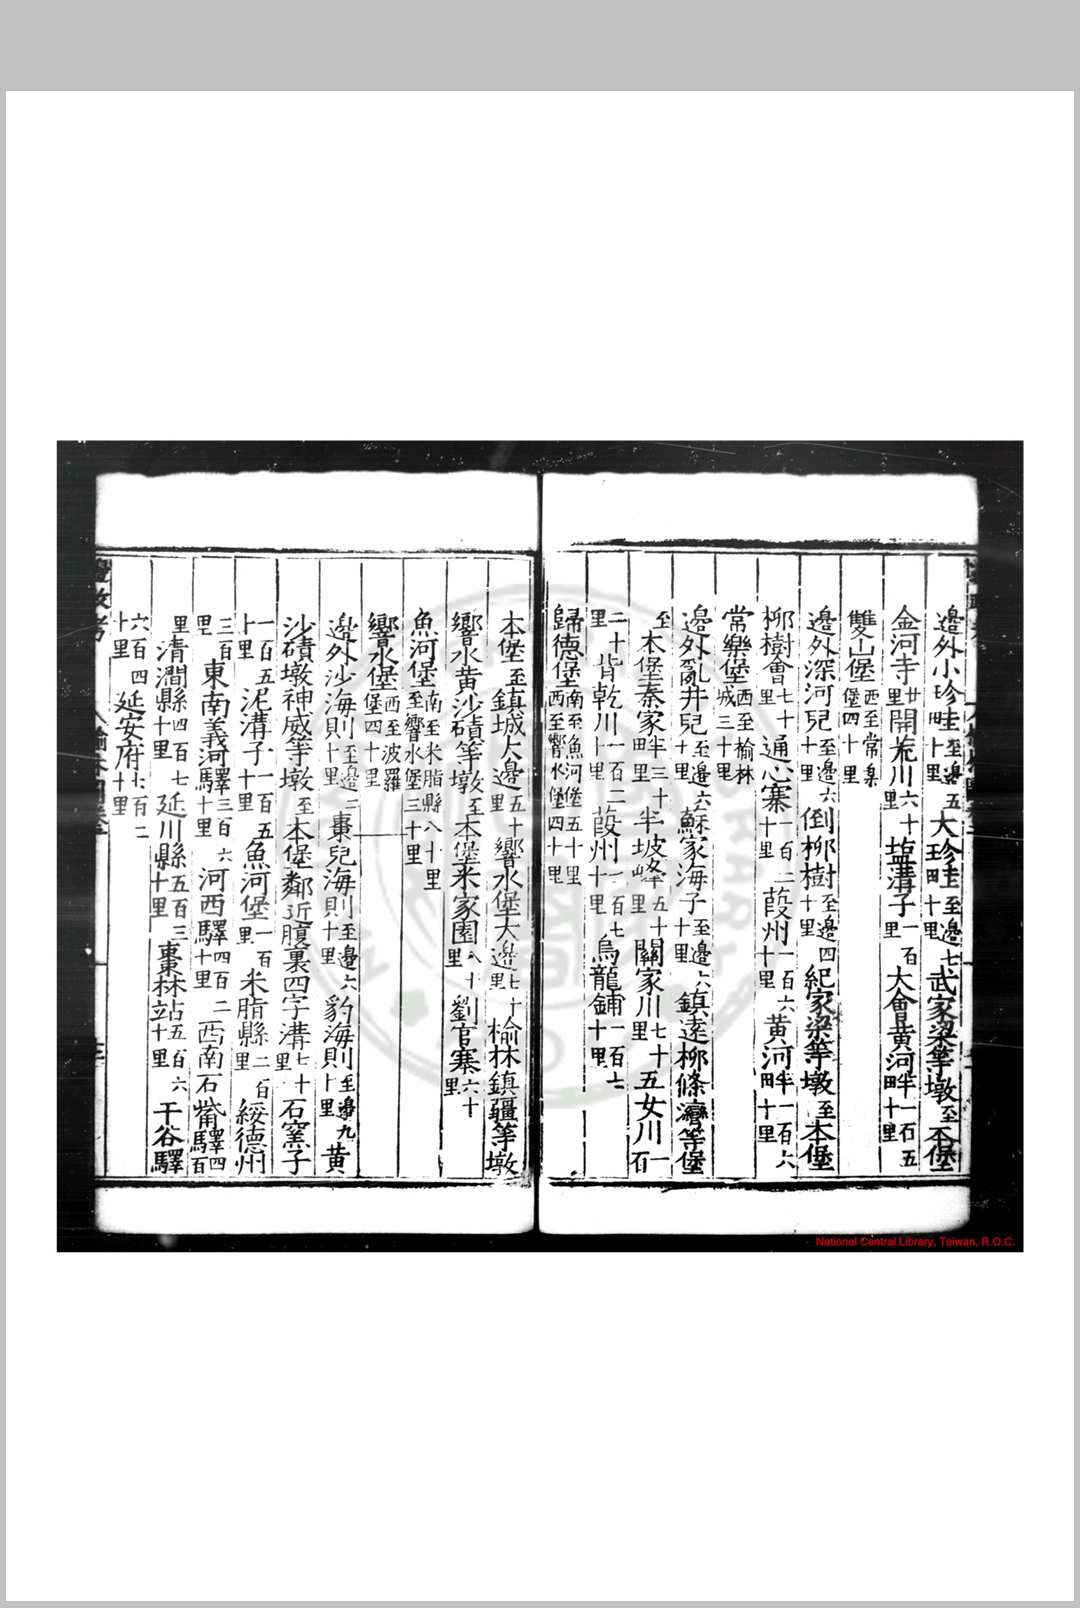 邊外小珍圭至邊五十里大珍圭至邊七十里武家梁等墩至本堡
金河寺廿里開荒川六十里塩溝子一百里大會黄河畔一百五十里
雙山堡西至常樂堡四十里
邊外深河兒至邊六十里倒柳樹至邊四十里紀家梁等墩至本堡
柳樹會七十里通心寨一百二十里葭州一百六十里黄河畔一百六十里
常樂堡西至榆林城三十里
邊外亂井兒至邊六十里蘇家海子至邊六十里鎮遠柳條灣等堡
至本堡秦家畔三十里半坡峰五十里關家川七十里五女川一百
二十里背乾川一百二十里葭州一百七十里烏龍鋪一百七十里
歸德堡南至魚河堡五十里西至響水堡四十里
本堡至鎮城大邊五十里響水堡大邊七十里榆林鎮疆等墩
響水黄沙磧等墩至本堡米家園八十里劉官寨六十里
魚河堡南至米脂縣八十里西至響水堡三十里
響水堡西至波羅堡四十里
邊外沙海則至邊二十里棗兒海則至邊六十里豹海則至邊九十里黄
沙磧墩神威等墩至本堡鄰近腹裏四字溝七十里石窑子
一百五十里泥溝子一百五十里魚河堡一百里米脂縣二百里綏德州
三百里東南義河驛三百六十里河西驛四百二十里西南石觜驛四百
里清澗縣四百七十里延川縣五百三十里棗林站五百六十里干谷驛
六百四十里延安府七百二十里
National Central Library, Taiwan, R.O.C.